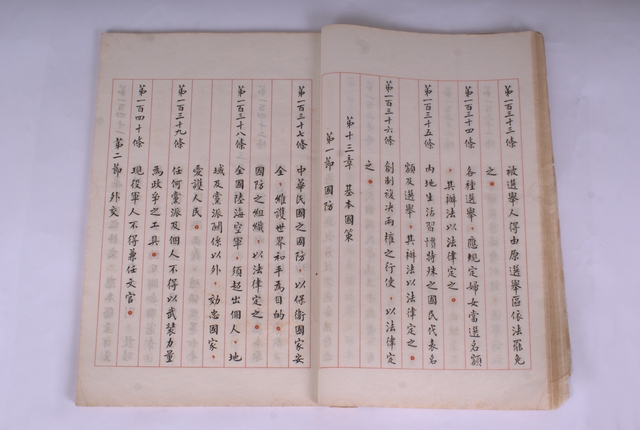 第一百三十三條 被選舉人得由原選舉區依法罷免
之。
第一百三十四條 各種選舉，應規定婦女當選名額
，其辦法以法律定之。
第一百三十五條 內地生活習慣特殊之國民代表名
額及選舉，其辦法以法律定之。
第一百三十六條 創制複決兩權之行使，以法律定
之。
第十三章 基本國策
第一節 國防
第一百三十七條 中華民國之國防，以保衛國家安
全，維護世界和平為目的。
國防之組織，以法律定之。
第一百三十八條 全國陸海空軍，須超出個人、地
域及黨派關係以外，効忠國家，
愛護人民。
第一百三十九條 任何黨派及個人不得以武裝力量
為政爭之工具。
第一百四十條 現役軍人不得兼任文官。
第二節 外交